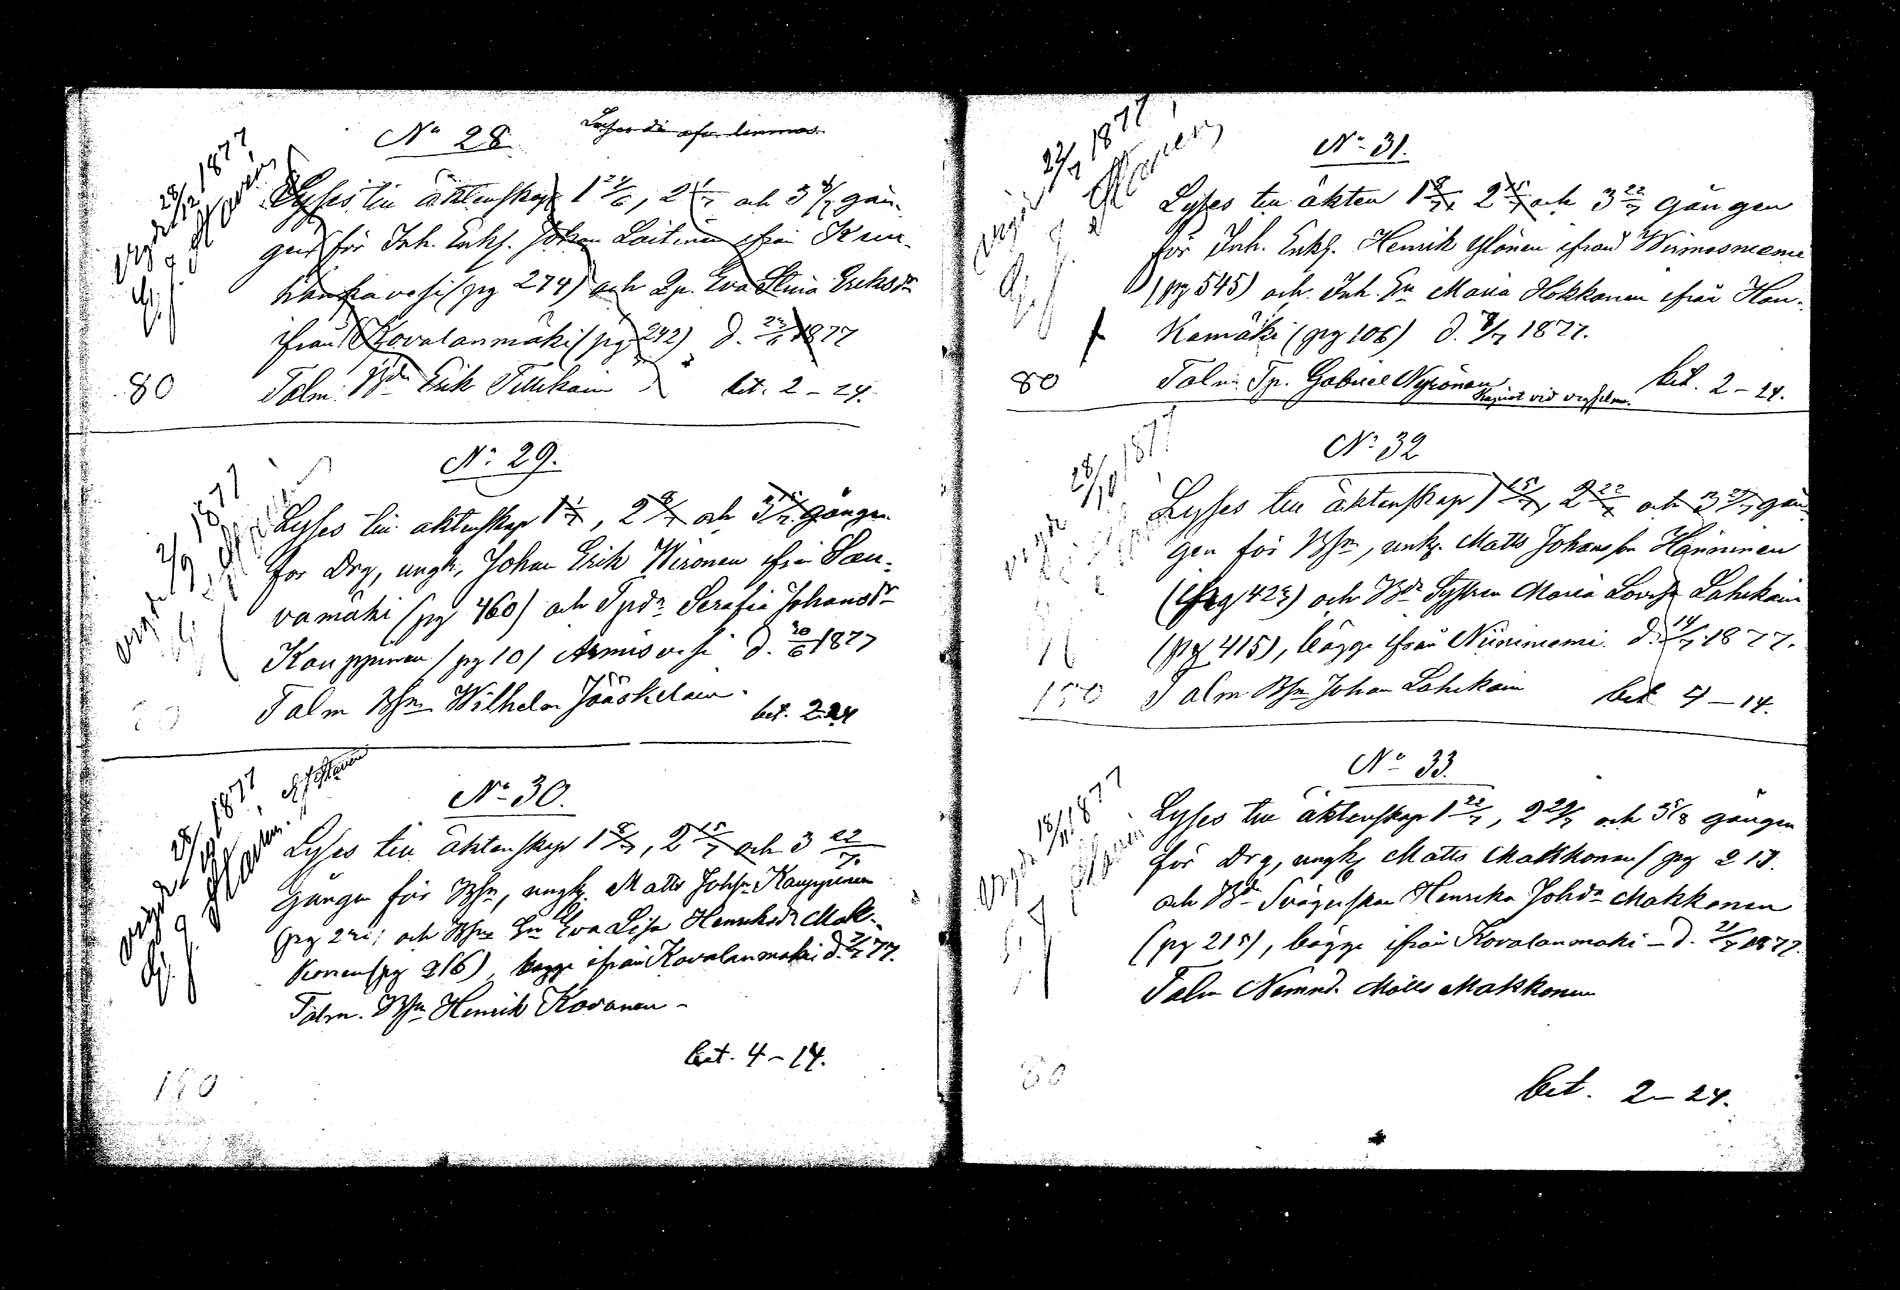 No 28
Lyses till äktenskap 1 24/6, 2 1/7 och 3 8/7 gån-
gen för Inh. Enkl. Johan Laitinen ifrån
(pg 274) och Lp. Eva Stina Eriksdr
ifrån Kovalanmäki (pg 242) d. 1877
80
Talm. Erik Tillikain bet. 2 – 24.
vigde 28/12 1877
No 29.
Lyses till äktenskap 1 1/7, 2 8/7 och 3 15/7 gången
för Drg, ungk. Johan Erik Wironen ifrån Sau-
vamäki (pg 460) och Tpdr Serafia Johansdr
Kauppinen (pg 10) Armisvesi d. 30/6 1877
Talm Bsn Wilhelm Jääskelain. bet. 2.24
80
vigde 2/9 1877
No 30.
Lyses till äktenskap 1 8/7, 2 15/7 och 3 22/7.
gången för Bsn, ungk. Matts Johsn Kauppinen
(pg och Eva Lisa Henriksdr Mak-
konen (pg 216), bägge ifrån Kovalanmäki d. 7/7 77.
Talm. Bsn Henrik Kovanen –
bet. 4 – 14.
150
vigde 28/10 1877
No 31.
Lyses till äkten 1 8/7, 2 15/7 och 3 22/7 gången
för Inh. Enkl. Henrik Ylönen ifrån Wirmasniemi
(pg 545) och Inh. Maria Hokkanen ifrån Han-
kamäki (pg 106) d. 1877.
80
Talm Tp. Gabriel Nyrönen bet. 2 – 24.
vid vigseln.
vigde 22/7 1877
No 32
Lyses till äktenskap 1 15/7, 2 22/7 och 3 29/7 gån-
gen för Bsn, unk. Matts Johansson Hänninen
(pg 423) och Systren Maria Lovisa Lahikain
(pg 415), bägge ifrån Niinimemi d. 14/7 1877.
150
Talm Bsn Johan Lahikain bet 4 – 14.
vigde 28/10 1877
No 33.
Lyses till äktenskap 1 22/7, 2 29/7 och 3 5/8 gången
för Drg, ungk. Matts Makkonen (pg 213.
och Svägerskan Henrika Johdr Makkonen
(pg 215), bägge ifrån Kovalanmäki – d. 21/7 1877.
Talm Nämnd. Matts Makkonen
80
bet. 2 – 24.
vigde 18/11 1877